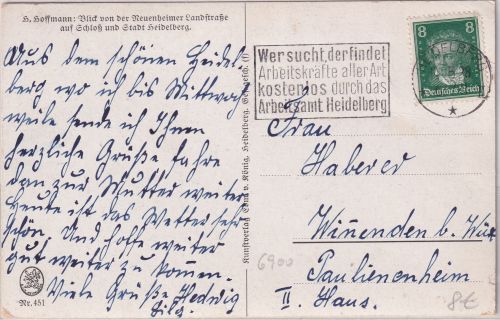 H. Hoffmann: Blick von der Neuenheimer Landstraße
auf Schloß und Stadt Heidelberg.
Aus dem schönen Heidel-
berg wo ich bis Mittwoch
weile sende ich Ihnen
herzliche Grüße fahre
dan zur Mutter weiter
Heute ist das Wetter sehr
schön. Und hoffe weiter
gut weiter zu kommen.
Viele Grüße Hedwig
Nr. 451
Kunstverlag Edm. v. König, Heidelberg.
Wer sucht, der findet
Arbeitskräfte aller Art
kostenlos durch das
Arbeitsamt Heidelberg
8 8
Deutsches Reich
Frau
Haberer
Winnenden b. Württ
Paulienenheim
II. Haus.
6900
8€